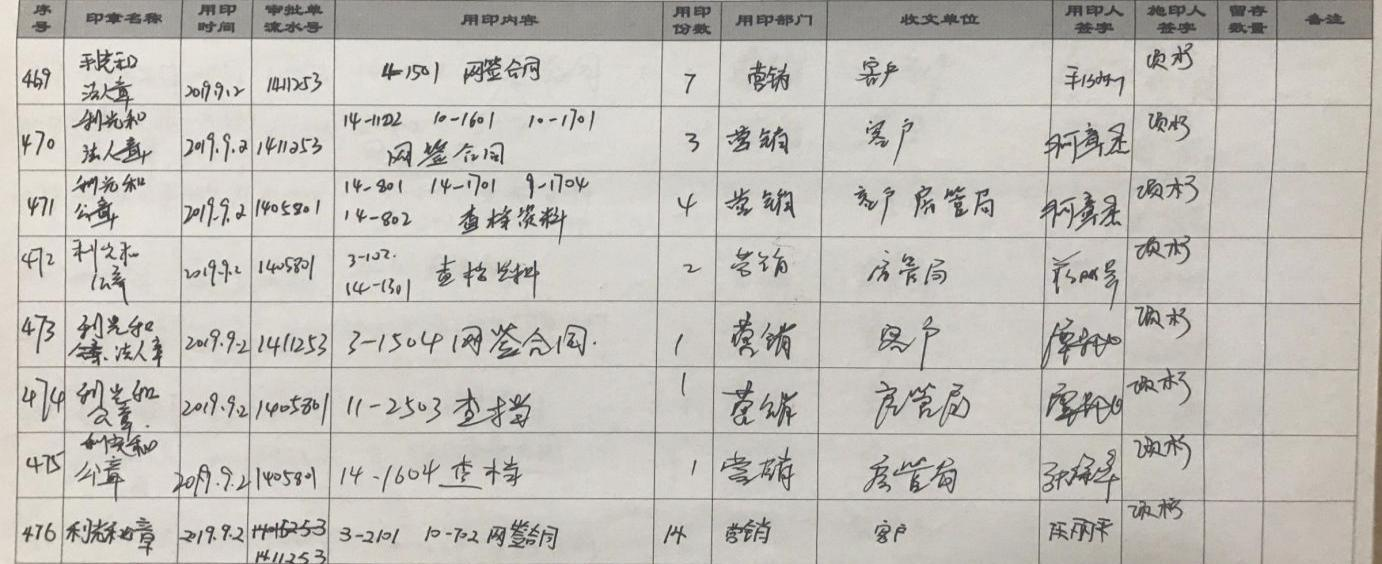 序号 印章名称 用印时间 审批单流水号 用印内容 用印份数 用印部门 收文单位 用印人签字 施印人签字 留存数量 备注
469 利光和法人章 2019.9.2 1411253 4-1501 网签合同 7 营销 客户 项杉
470 利光和法人章 2019.9.2 1411253 14-1102 10-1601 10-1701 网签合同 3 营销 客户 项杉
471 利光和公章 2019.9.2 1405801 14-801 14-1701 9-1704 14-802 查档资料 4 营销 客户 房管局 项杉
472 利光和公章 2019.9.2 1405801 3-102. 14-1301 查档资料 2 营销 房管局 项杉
473 利光和公章、法人章 2019.9.2 1411253 3-1504 网签合同. 1 营销 客户 项杉
474 利光和公章. 2019.9.2 1405801 11-2503 查档 1 营销 房管局 项杉
475 利光和公章 2019.9.2 1405801 14-1604 查档 1 营销 房管局 项杉
476 利光和公章 2019.9.2 1411253 3-2101 10-702 网签合同 14 营销 客户 项杉